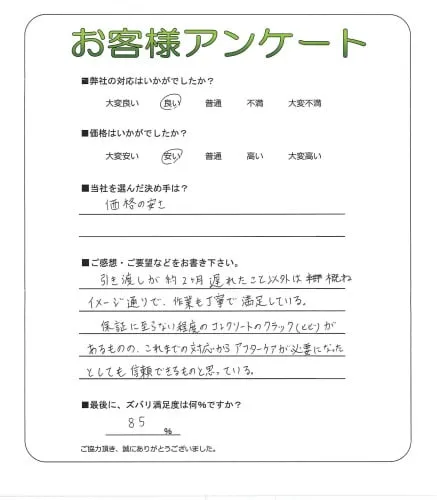 お客様アンケート
■弊社の対応はいかがでしたか？
大変良い 良い 普通 不満 大変不満
■価格はいかがでしたか？
大変安い 安い 普通 高い 大変高い
■当社を選んだ決め手は？
価格の安さ
■ご感想・ご要望などをお書き下さい。
引き渡しが約2ヶ月遅れたこと以外は 概ね
イメージ通りで、作業も丁寧で満足している。
保証に至らない程度のコンクリートのクラック()が
あるものの、これまでの対応からアフターケアが必要になった
としても信頼できるものと思っている。
■最後に、ズバリ満足度は何％ですか？
85 %
ご協力頂き、誠にありがとうございました。